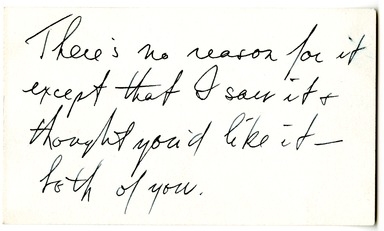 There's no reason for it
except that I saw it &
thought you'd like it —
both of you.